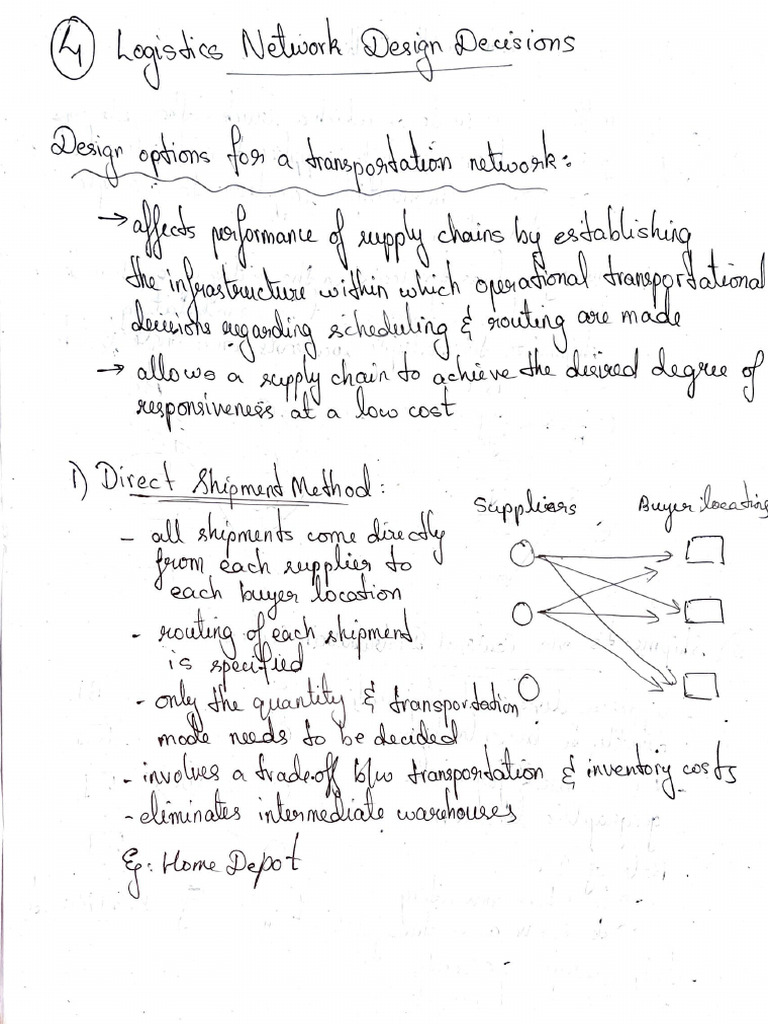 4 Logistics Network Design Decisions
Design options for a transportation network:
→ affects performance of supply chains by establishing
the infrastructure within which operational transportational
decisions regarding scheduling & routing are made
→ allows a supply chain to achieve the desired degree of
responsiveness at a low cost
1) Direct Shipment Method:
Suppliers Buyer locations
- all shipments come directly
from each supplier to
each buyer location
- routing of each shipment
is specified
- only the quantity & transportation
mode needs to be decided
- involves a trade-off b/w transportation & inventory costs
- eliminates intermediate warehouses
Eg: Home Depot